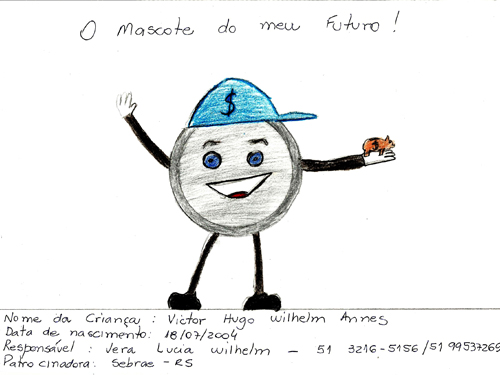 O Mascote do meu Futuro!
$
$
Nome da Criança: Victor Hugo Wilhelm Annes
Data de nascimento: 18/07/2004
Responsável: Vera Lucia Wilhelm - 51 3216-5156/51 99537269
Patrocinadora: Sebrae - RS